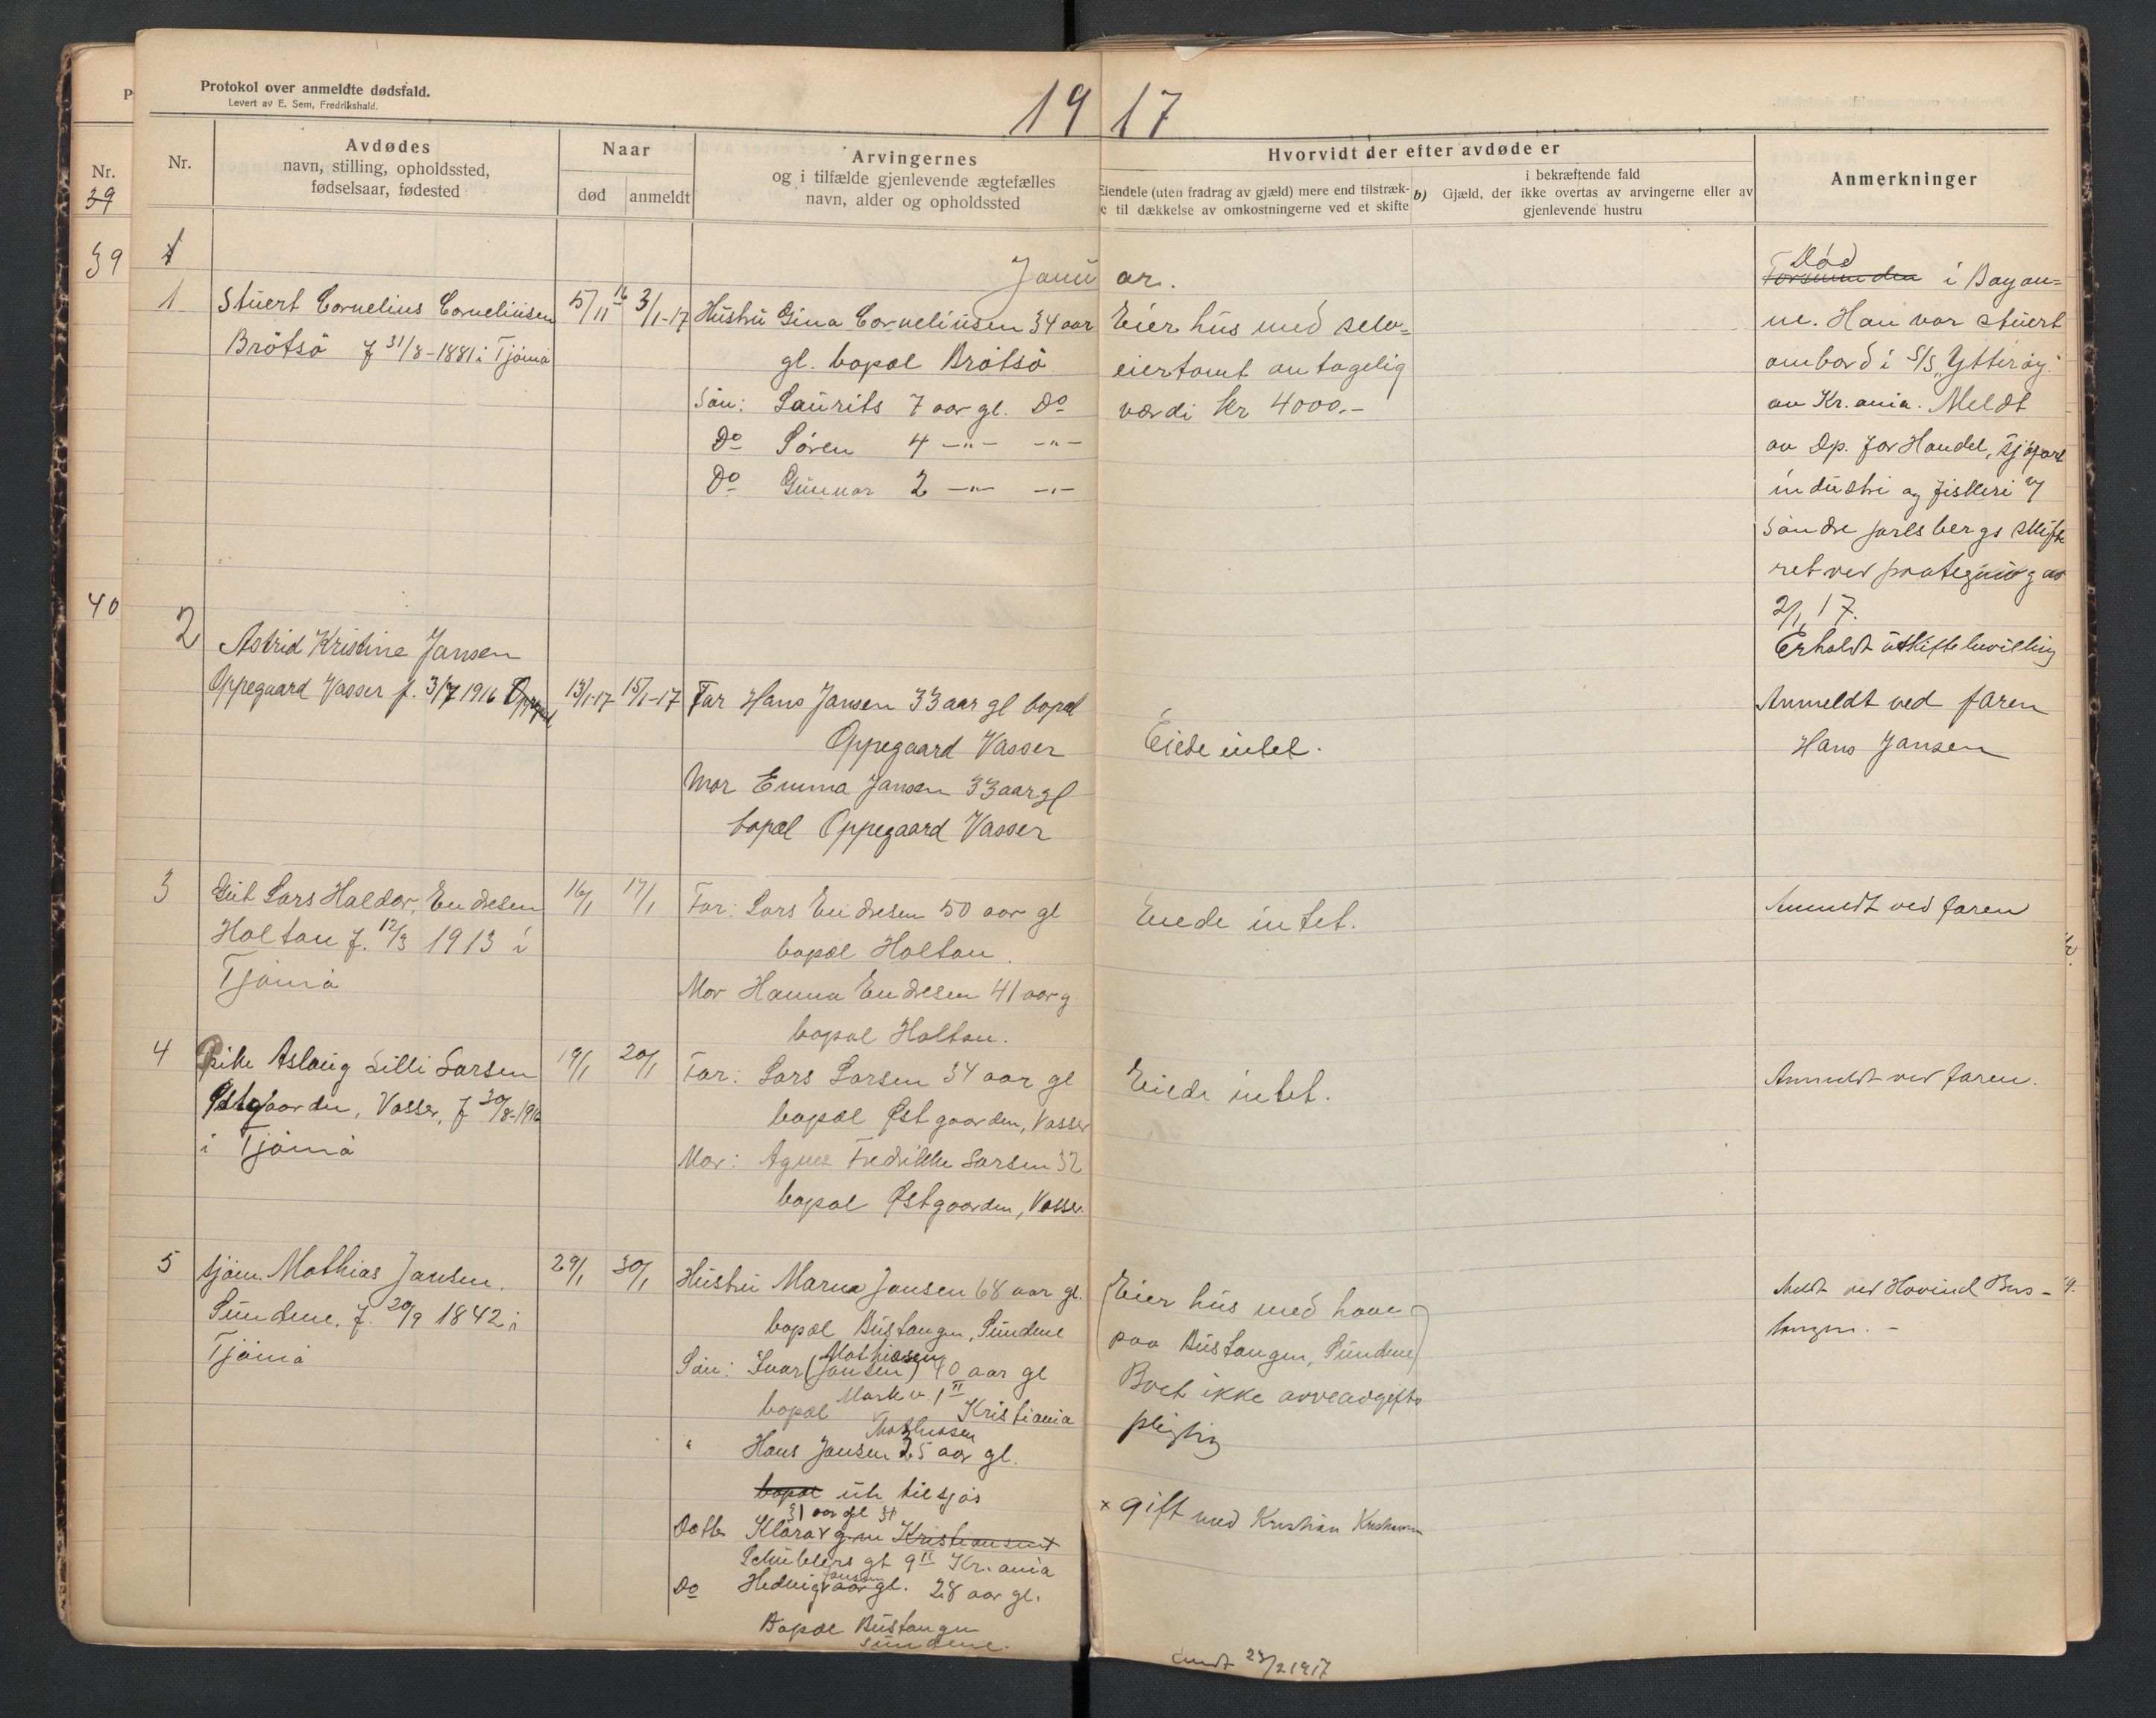 Protokol over anmeldte dødsfald.
Levert av E. Sem, Fredrikshald.
19 17
Nr.
39
39
40
Nr.
Avdødes
navn, stilling, opholdssted,
fødselsaar, fødested
Naar
død
anmeldt
Arvingernes
og i tilfælde gjenlevende ægtefælles
navn, alder og opholdssted
Hvorvidt der efter avdøde er
Eiendele (uten fradrag av gjæld) mere end tilstræk-
e til dækkelse av omkostningerne ved et skifte
i bekræftende fald
b) Gjæld, der ikke overtas av arvingerne eller av
gjenlevende hustru
Anmerkninger
Januar.
1
Stuert Cornelius Corneliusen
Brøtsø f 31/8-1881 i Tjømø
5/11 16
3/1-17
Hustru Gina Corneliusen 34 aar
gl. bopæl Brøtsø
Søn: Laurits 7 aar gl. Do
Do Søren 4 -"- -"-
Do Gunnar 2 -"- -"-
Eier hus med selv=
eiertomt antagelig
værdi kr 4000.-
Død
i Bayon=
ne. Han var stuert
ombord i S/S "Ytterøy"
av Kr.ania. Meldt
av Dp. for Handel, sjøfart
industri og fiskeri
Søndre Jarlsbergs skifte
ret ved paategning av
2/1 17.
Erholdt uskiftebevilling
2
Astrid Kristine Jansen
Oppegaard Vasser f. 3/7 1916
13/1-17
15/1-17
Far Hans Jansen 33 aar gl bopæl
Oppegaard Vasser
Mor Emma Jansen 33 aar gl
bopæl Oppegaard Vasser
Eiede intet.
Anmeldt ved faren
Hans Jansen
3
Gut Lars Haldor Endresen
Holtan f. 12/3 1913 i
Tjømø
16/1
17/1
Far: Lars Endresen 50 aar gl
bopæl Holtan.
Mor Hanna Endresen 41 aar g
bopæl Holtan.
Eiede intet.
Anmeldt ved faren
4
Pike Aslaug Lilli Larsen
Østgaarden, Vasser, f 30/8-1916
i Tjømø
19/1
20/1
Far: Lars Larsen 34 aar gl
bopæl Østgaarden, Vasser
Mor: Agnes Fredrikke Larsen 32
bopæl Østgaarden, Vasser.
Eiede intet.
Anmeldt ved faren.
5
sjøm. Mathias Jansen.
Sundene, f. 20/9 1842 i
Tjømø
29/1
30/1
Hustru Marna Jansen 68 aar gl.
bopæl Bustangen, Sundene
Mathiasen
Søn: Ivar (Jansen) 40 aar gl
Mark v. 1 II
bopæl Kristiania
Mathiasen
" Hans Jansen 25 aar gl.
bopæl ute tilsjøs
31 aar gl
Datter Klara g.m Kristiansen
Schüblers gt 9 II Kr.ania
Jansen
Do Hedvig aar gl. 28 aar gl.
Bopæl Bustangen
Sundene.
(Eier hus med have
paa Bustangen, Sundene)
Boet ikke arveavgifts
pligtig
x gift med Kristian Kristiansen
Meldt ved Hovind Bus-
tangen. -
23/2 1917